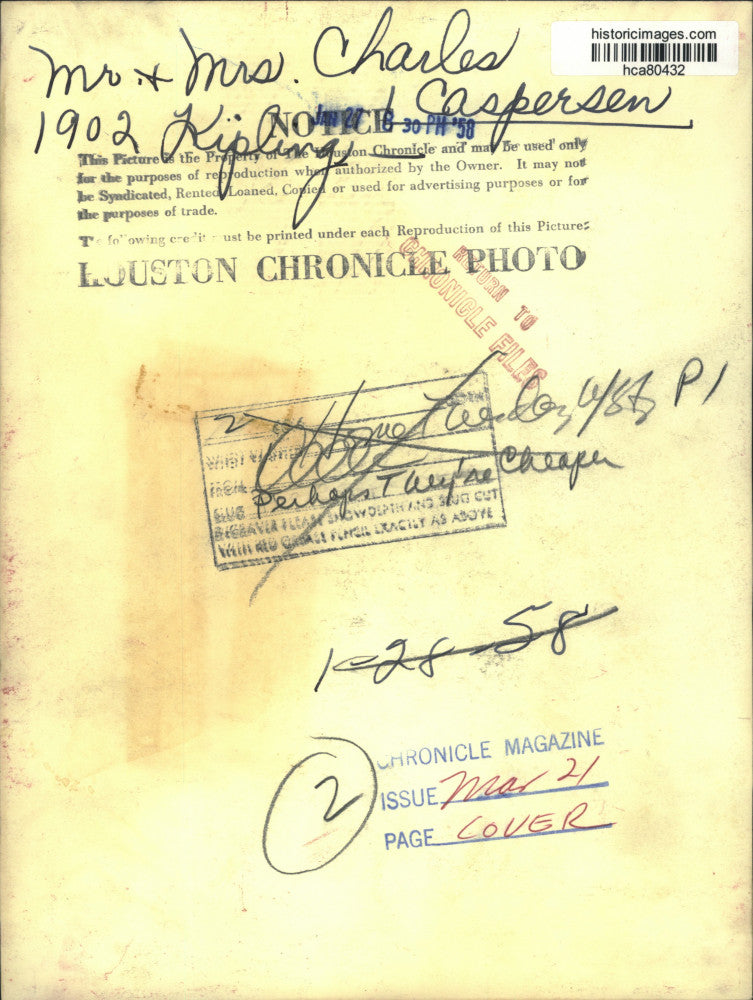 historicimages.com
hca80432
Mr. + Mrs. Charles
Caspersen
1902 Kipling
NOTICE
Jan 27 8 30 PM '58
This Picture is the Property of The Houston Chronicle and may be used only
for the purposes of reproduction when authorized by the Owner. It may not
be Syndicated, Rented, Loaned, Copied or used for advertising purposes or for
the purposes of trade.
The following credit must be printed under each Reproduction of this Picture:
HOUSTON CHRONICLE PHOTO
RETURN TO
CHRONICLE FILES
2
Home Tuesday P1
Perhaps They're Cheaper
SLUG
ENGRAVER PLEASE SHOW DEPTH AND SLUG CUT
WITH RED GREASE PENCIL EXACTLY AS ABOVE
1-28-58
2
CHRONICLE MAGAZINE
ISSUE Mar 21
PAGE COVER